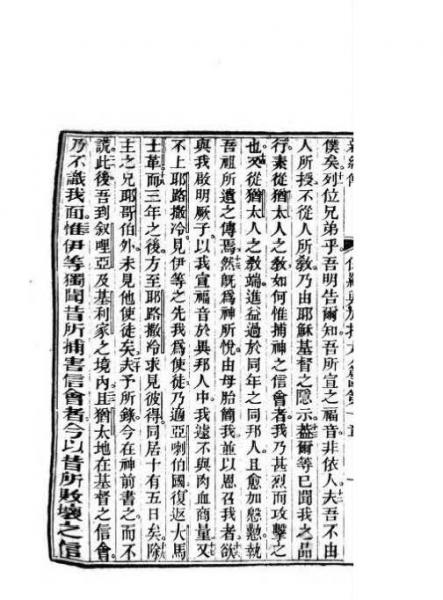 僕矣列位兄弟乎吾明告爾知吾所宣之福音非依人夫吾不由
人所授不從人所教乃由耶穌基督之隱示蓋爾等已聞我之品
行素從猶太人之教如何惟捕神之信會者我乃甚烈而攻擊之
也又從猶太人之教端進益過於同年之同邦人且愈加慇懃執
吾祖所遺之傳焉然既為神所悅由母胎簡我並以恩召我者欲
與我啟明厥子以我宣福音於異邦人中我遠不與肉血商量又
不上耶路撒冷見伊等之先我為使徒乃適亞喇伯國復返大馬
士革而三年之後方至耶路撒冷求見彼得同居十有五日矣除
主之兄耶哥伯外未見他使徒矣夫予所錄今在神前書之而不
謊此後吾到叙哩亞及基利家之境內且猶太地在基督之信會
乃不識我面惟伊等獨聞昔所捕害信會者今以昔所敗壞之信